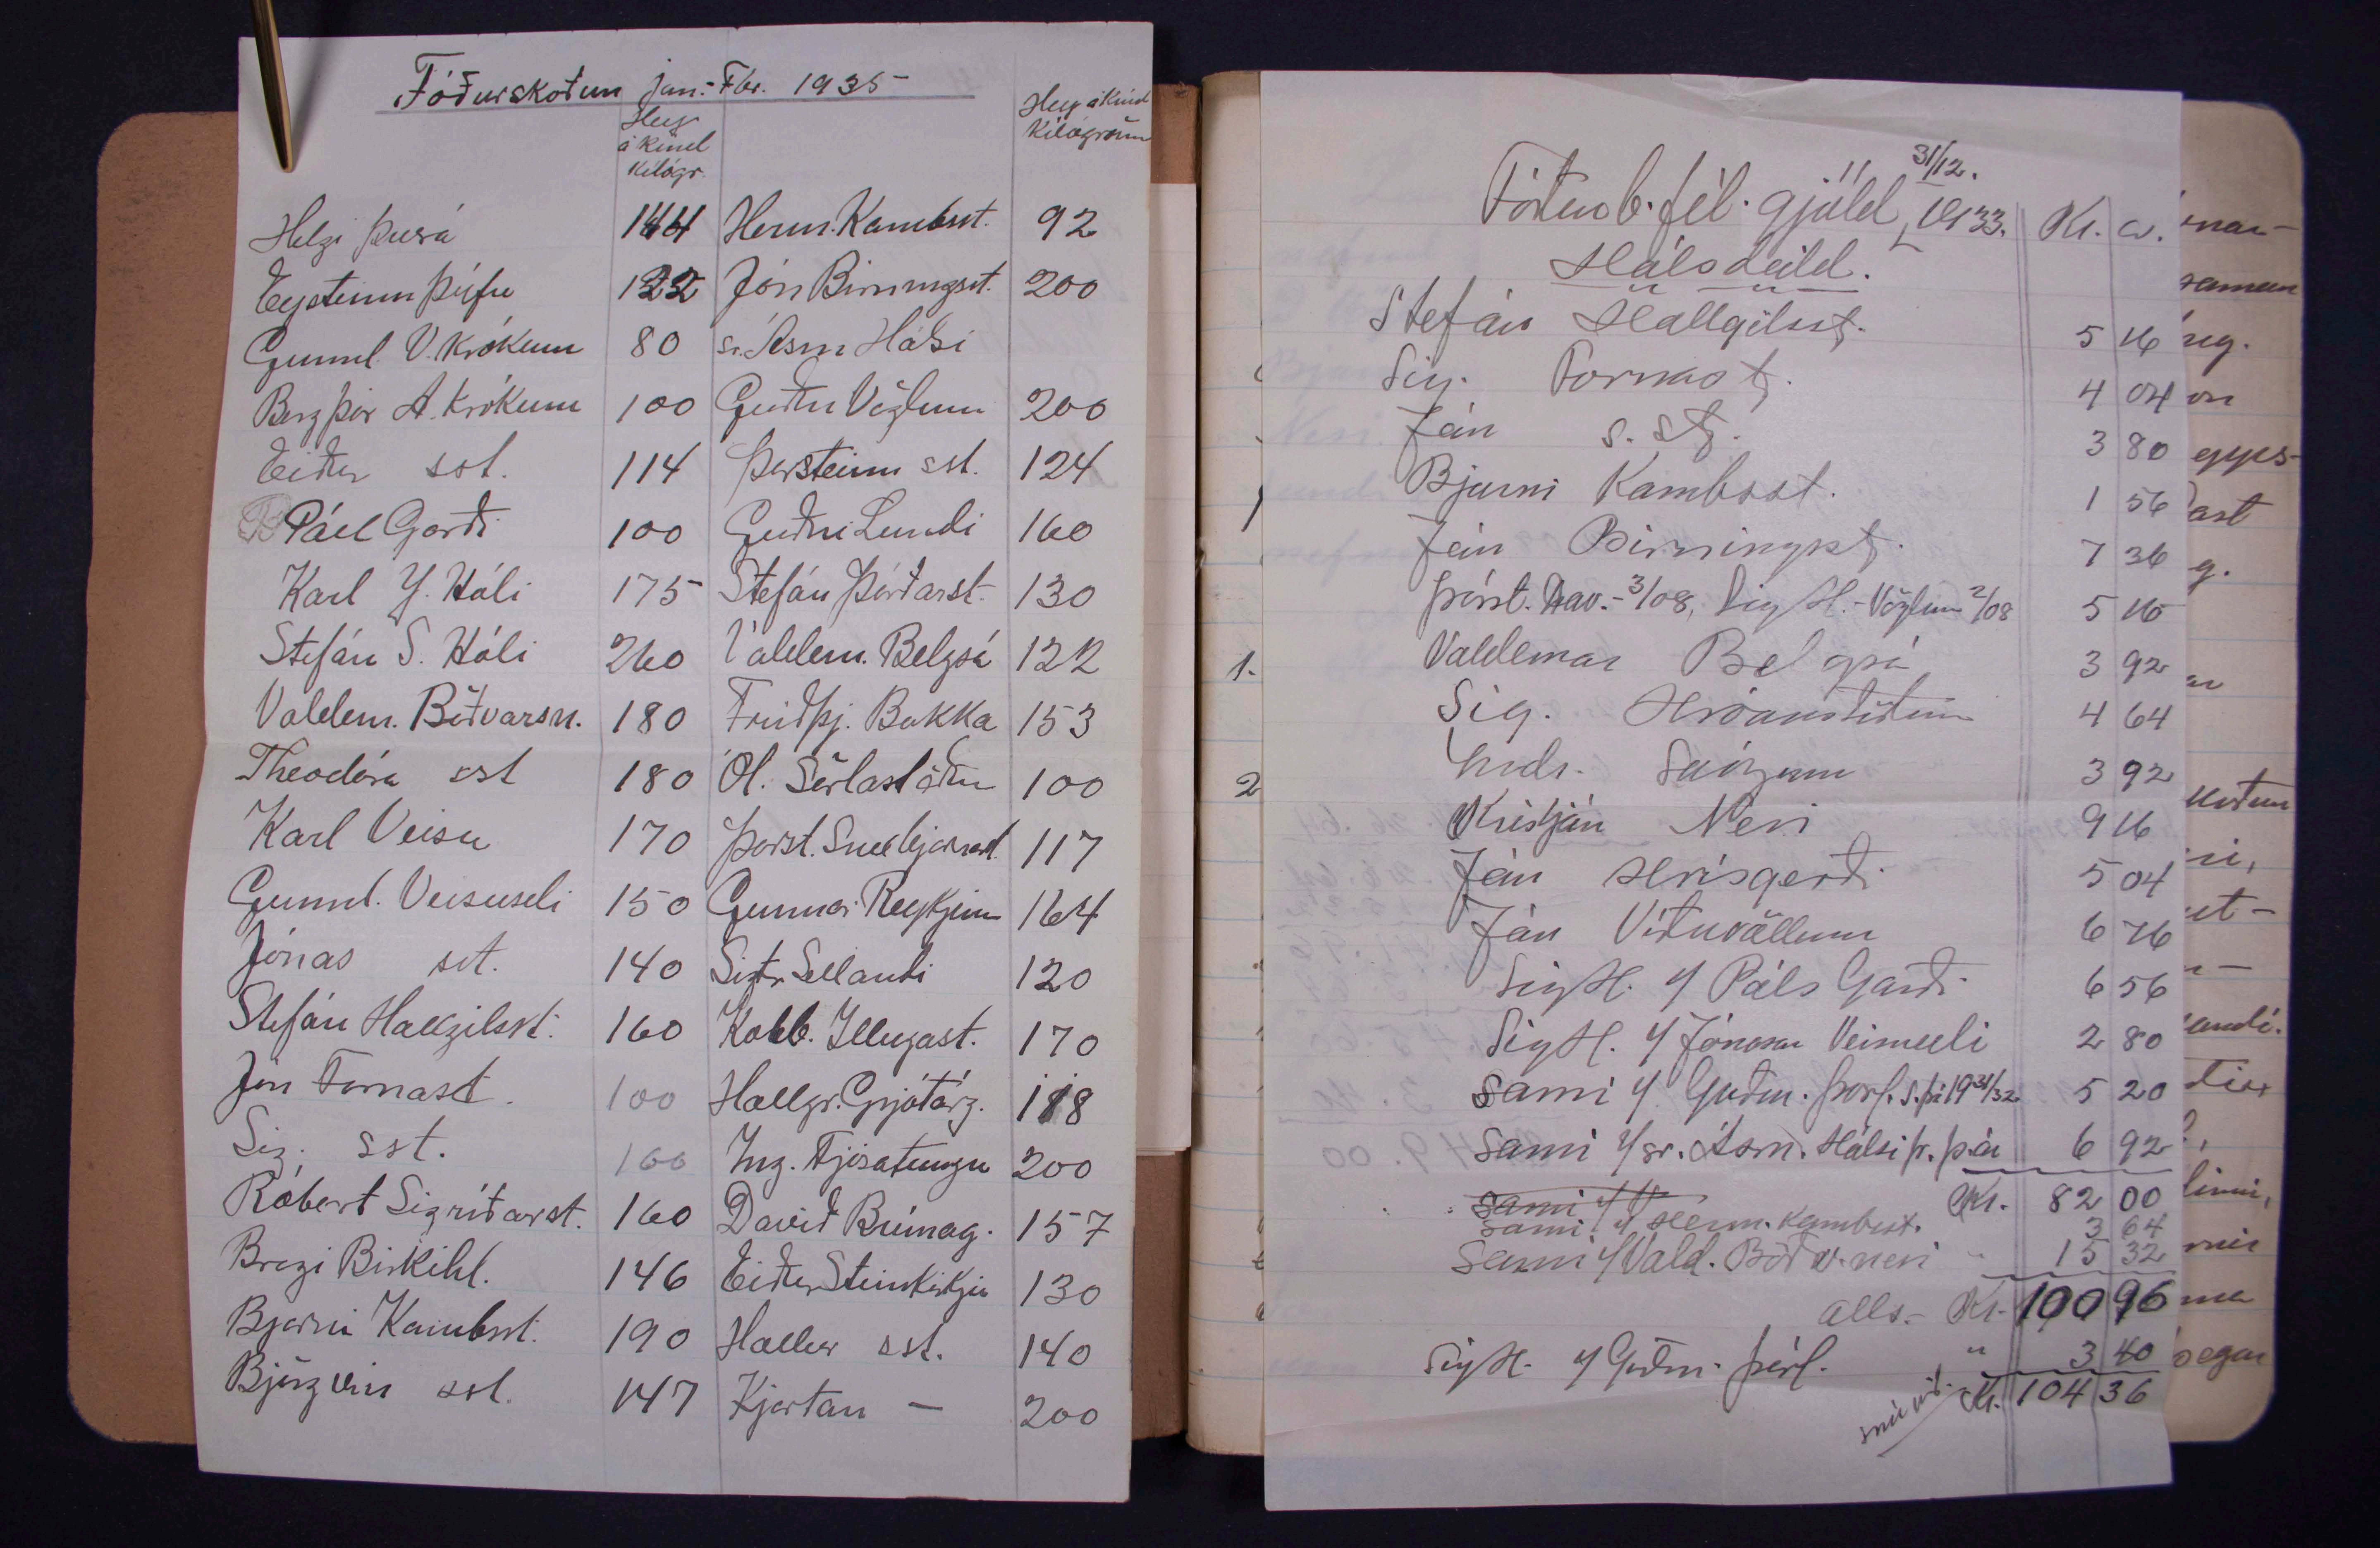 Fóðurskoðun jan.-Fbr. 1935
Hey á kind Kílógr.
Hey á kind Kílógröm
Helgi Þverá 144 Herm. Kambsst. 92
Eysteinn Þúfu 122 Jón Birningsst. 200
Gunnl. V. Krókum 80 sr. Ásm Hálsi
Bergþór A. Krókum 100 Guðni Vöglum 200
Eiður sst. 114 Þorsteinn sst. 124
Páll Garði 100 Guðni Lundi 160
Karl Y. Hóli 175 Stefán Þórðarst. 130
Stefán S. Hóli 260 Valdem. Belgsá 122
Valdem. Böðvarsn. 180 Friðþj. Bakka 153
Theodóra sst 180 Ól. Sörlastöðum 100
Karl Veisu 170 Þorst. Snæbjarnarst. 117
Gunnl. Veisuseli 150 Gunnar Reykjum 164
Jónas sst. 140 Sigtr. Sellandi 120
Stefán Hallgilsst. 160 Kolb. Illugast. 170
Jón Fornast. 100 Hallgr. Grjótárg. 118
Sig. sst. 100 Ing. Fjósatungu 200
Róbert Sigríðarst. 160 Davíð Brúnag. 157
Bragi Birkihl. 146 Eiður Steinkirkju 130
Bjarni Kambsst. 190 Hallur sst. 140
Björgvin sst. 147 Kjartan — 200
Fóðurb.fél.gjöld 31/12. 1933. Kr. a.
Hálsdeild.
Stefán Hallgilsst. 5 16
Sig. Fornast. 4 04
Ján s. st. 3 80
Bjarni Kambsst. 1 56
Ján Birningsst. 7 36
Þórst. Hav.- 3/08, Sig H.-Vöglum 2/08 5 16
Valdemar Belgsá 3 92
Sig. Hróarsstöðum 4 64
Indr. Skógum 3 92
Kristján Nesi 9 16
Ján Hrísgerði 5 04
Ján Víðivöllum 6 76
Sig H. y Páls Garði 6 56
Sig H. y Jónasar Veisuseli 2 80
Sami y Guðm. Þorf. s. frá 1931/32 5 20
Sami y sr. Ásm. Hálsi fr. þ.ár 6 92
Kr. 82 00
Sami y
Sami y Herm. Kambsst. 3 64
Sami y Vald. Böðv.nesi " 15 32
alls.- Kr. 100 96
Sig H. y Guðm. Þórf. " 3 40
snú við. Kr. 104 36